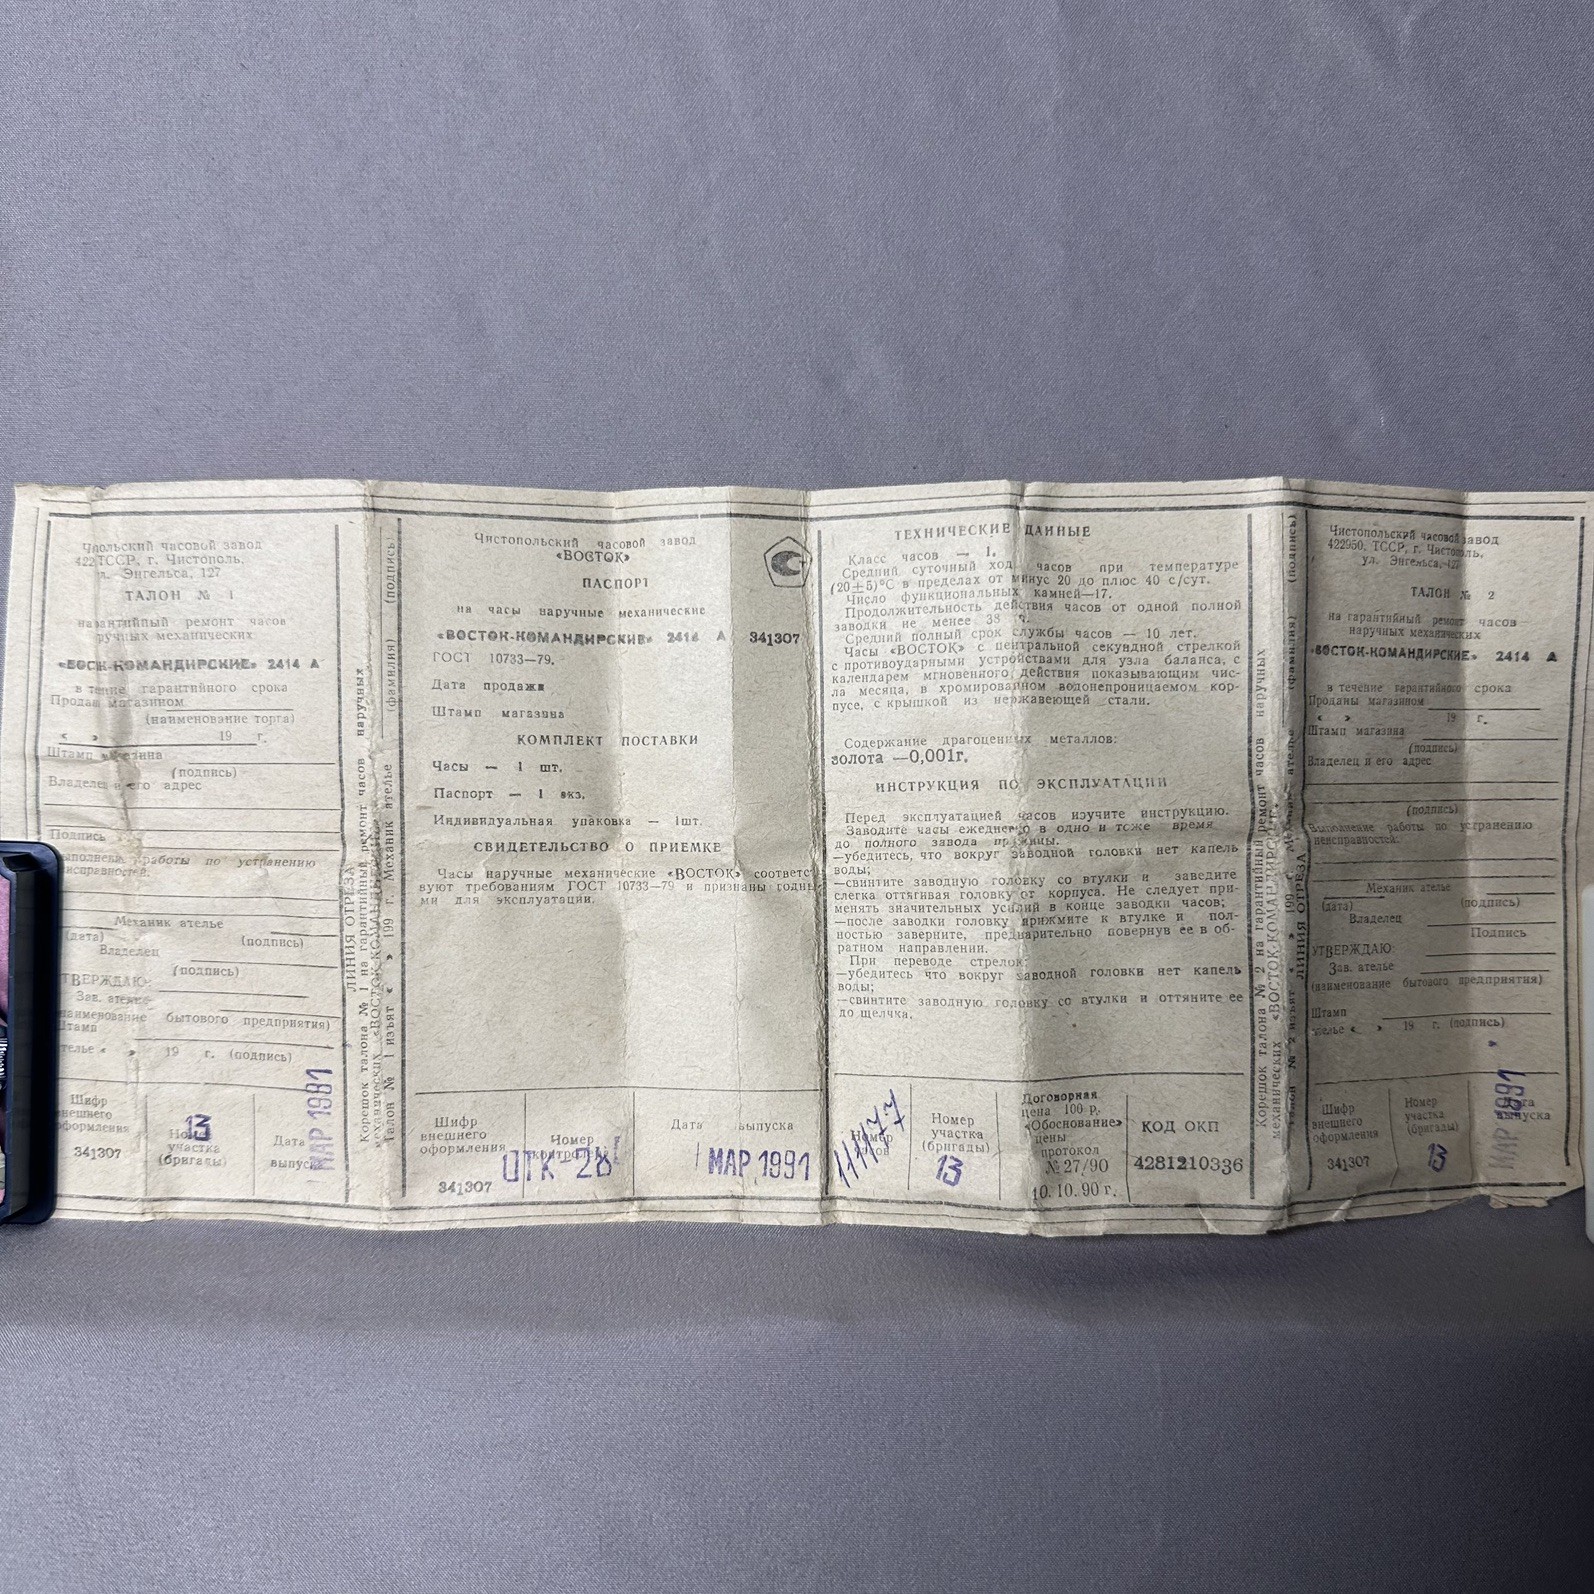 часовой завод
ТССР, г. Чистополь,
Энгельса, 127
ТАЛОН № 1
ремонт часов
ручных механических
КОМАНДИРСКИЕ» 2414 А
гарантийного срока
магазином
(наименование торга)
« » 19 г.
Штамп
(подпись)
Владелец и его адрес
Подпись
работы по устранению
Механик ателье
(дата) (подпись)
Владелец
(подпись)
Зав. ателье
бытового предприятия)
« » 19 г. (подпись)
Шифр
внешнего
оформления
341307
13
участка
(бригады)
Дата
МАР 1991
ЛИНИЯ ОТРЕЗА
Корешок талона № 1 на гарантийный ремонт часов наручных
механических
Талон № 1 изъят « » 199 г. Механик ателье (фамилия) (подпись)
Чистопольский часовой завод
«ВОСТОК»
ПАСПОРТ
на часы наручные механические
«ВОСТОК-КОМАНДИРСКИЕ» 2414 А 341307
ГОСТ 10733—79.
Дата продажи
Штамп магазина
КОМПЛЕКТ ПОСТАВКИ
Часы — 1 шт.
Паспорт — 1 экз.
Индивидуальная упаковка — 1шт.
СВИДЕТЕЛЬСТВО О ПРИЕМКЕ
Часы наручные механические «ВОСТОК» соответст
вуют требованиям ГОСТ 10733—79 и признаны годны-
ми для эксплуатации.
Шифр
внешнего
оформления
341307
Номер
ОТК-28
Дата выпуска
МАР 1991
ТЕХНИЧЕСКИЕ ДАННЫЕ
Класс часов — 1.
Средний суточный ход часов при температуре
(20±5)°С в пределах от минус 20 до плюс 40 с/сут.
Число функциональных камней—17.
Продолжительность действия часов от одной полной
заводки не менее 38 ч.
Средний полный срок службы часов — 10 лет.
Часы «ВОСТОК» с центральной секундной стрелкой
с противоударными устройствами для узла баланса, с
календарем мгновенного действия показывающим чис-
ла месяца, в хромированном водонепроницаемом кор-
пусе, с крышкой из нержавеющей стали.
Содержание драгоценных металлов:
золота —0,001г.
ИНСТРУКЦИЯ ПО ЭКСПЛУАТАЦИИ
Перед эксплуатацией часов изучите инструкцию.
Заводите часы ежедневно в одно и тоже время
до полного завода пружины.
—убедитесь, что вокруг заводной головки нет капель
воды;
—свинтите заводную головку со втулки и заведите
слегка оттягивая головку от корпуса. Не следует при-
менять значительных усилий в конце заводки часов;
—после заводки головку прижмите к втулке и пол-
ностью заверните, предварительно повернув ее в об-
ратном направлении.
При переводе стрелок:
—убедитесь что вокруг заводной головки нет капель
воды;
—свинтите заводную головку со втулки и оттяните ее
до щелчка.
Номер
часов
Номер
участка
(бригады)
13
Договорная
цена 100 р.
«Обоснование»
цены
протокол
№ 27/90
10. 10. 90 г.
КОД ОКП
4281210336
Корешок талона № 2 на гарантийный ремонт часов наручных
механических «ВОСТОК-КОМАНДИРСКИЕ»
ЛИНИЯ ОТРЕЗА
Чистопольский часовой завод
422950, ТССР, г. Чистополь,
ул. Энгельса, 127
ТАЛОН № 2
на гарантийный ремонт часов
наручных механических
«ВОСТОК-КОМАНДИРСКИЕ» 2414 А
в течение гарантийного срока
Проданы магазином
« » 19 г.
Штамп магазина
(подпись)
Владелец и его адрес
(подпись)
Выполнение работы по устранению
неисправностей:
Механик ателье
(дата) (подпись)
Владелец
Подпись
УТВЕРЖДАЮ:
Зав. ателье
(наименование бытового предприятия)
Штамп
ателье « » 19 г. (подпись)
Шифр
внешнего
оформления
341307
Номер
участка
(бригады)
13
Дата
выпуска
МАР 1991